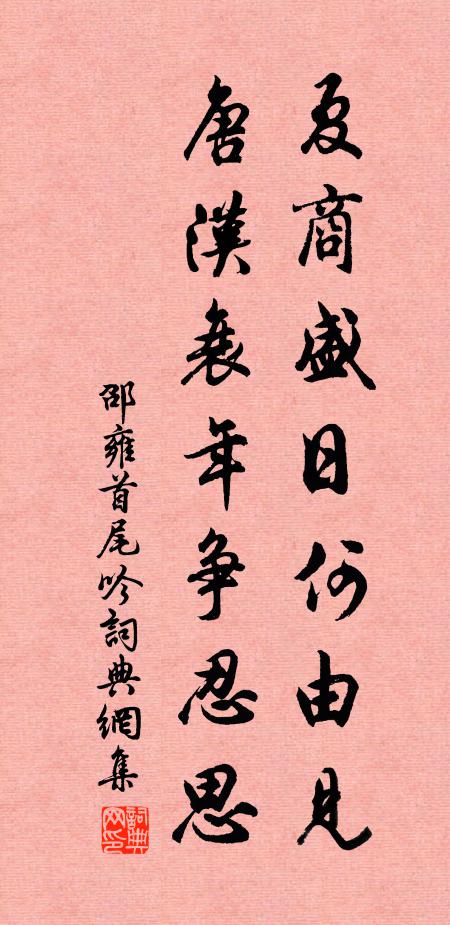 夏商盛日何由見
唐漢衰年争忍思
邵雍首尾吟詞典網集
詞典網印